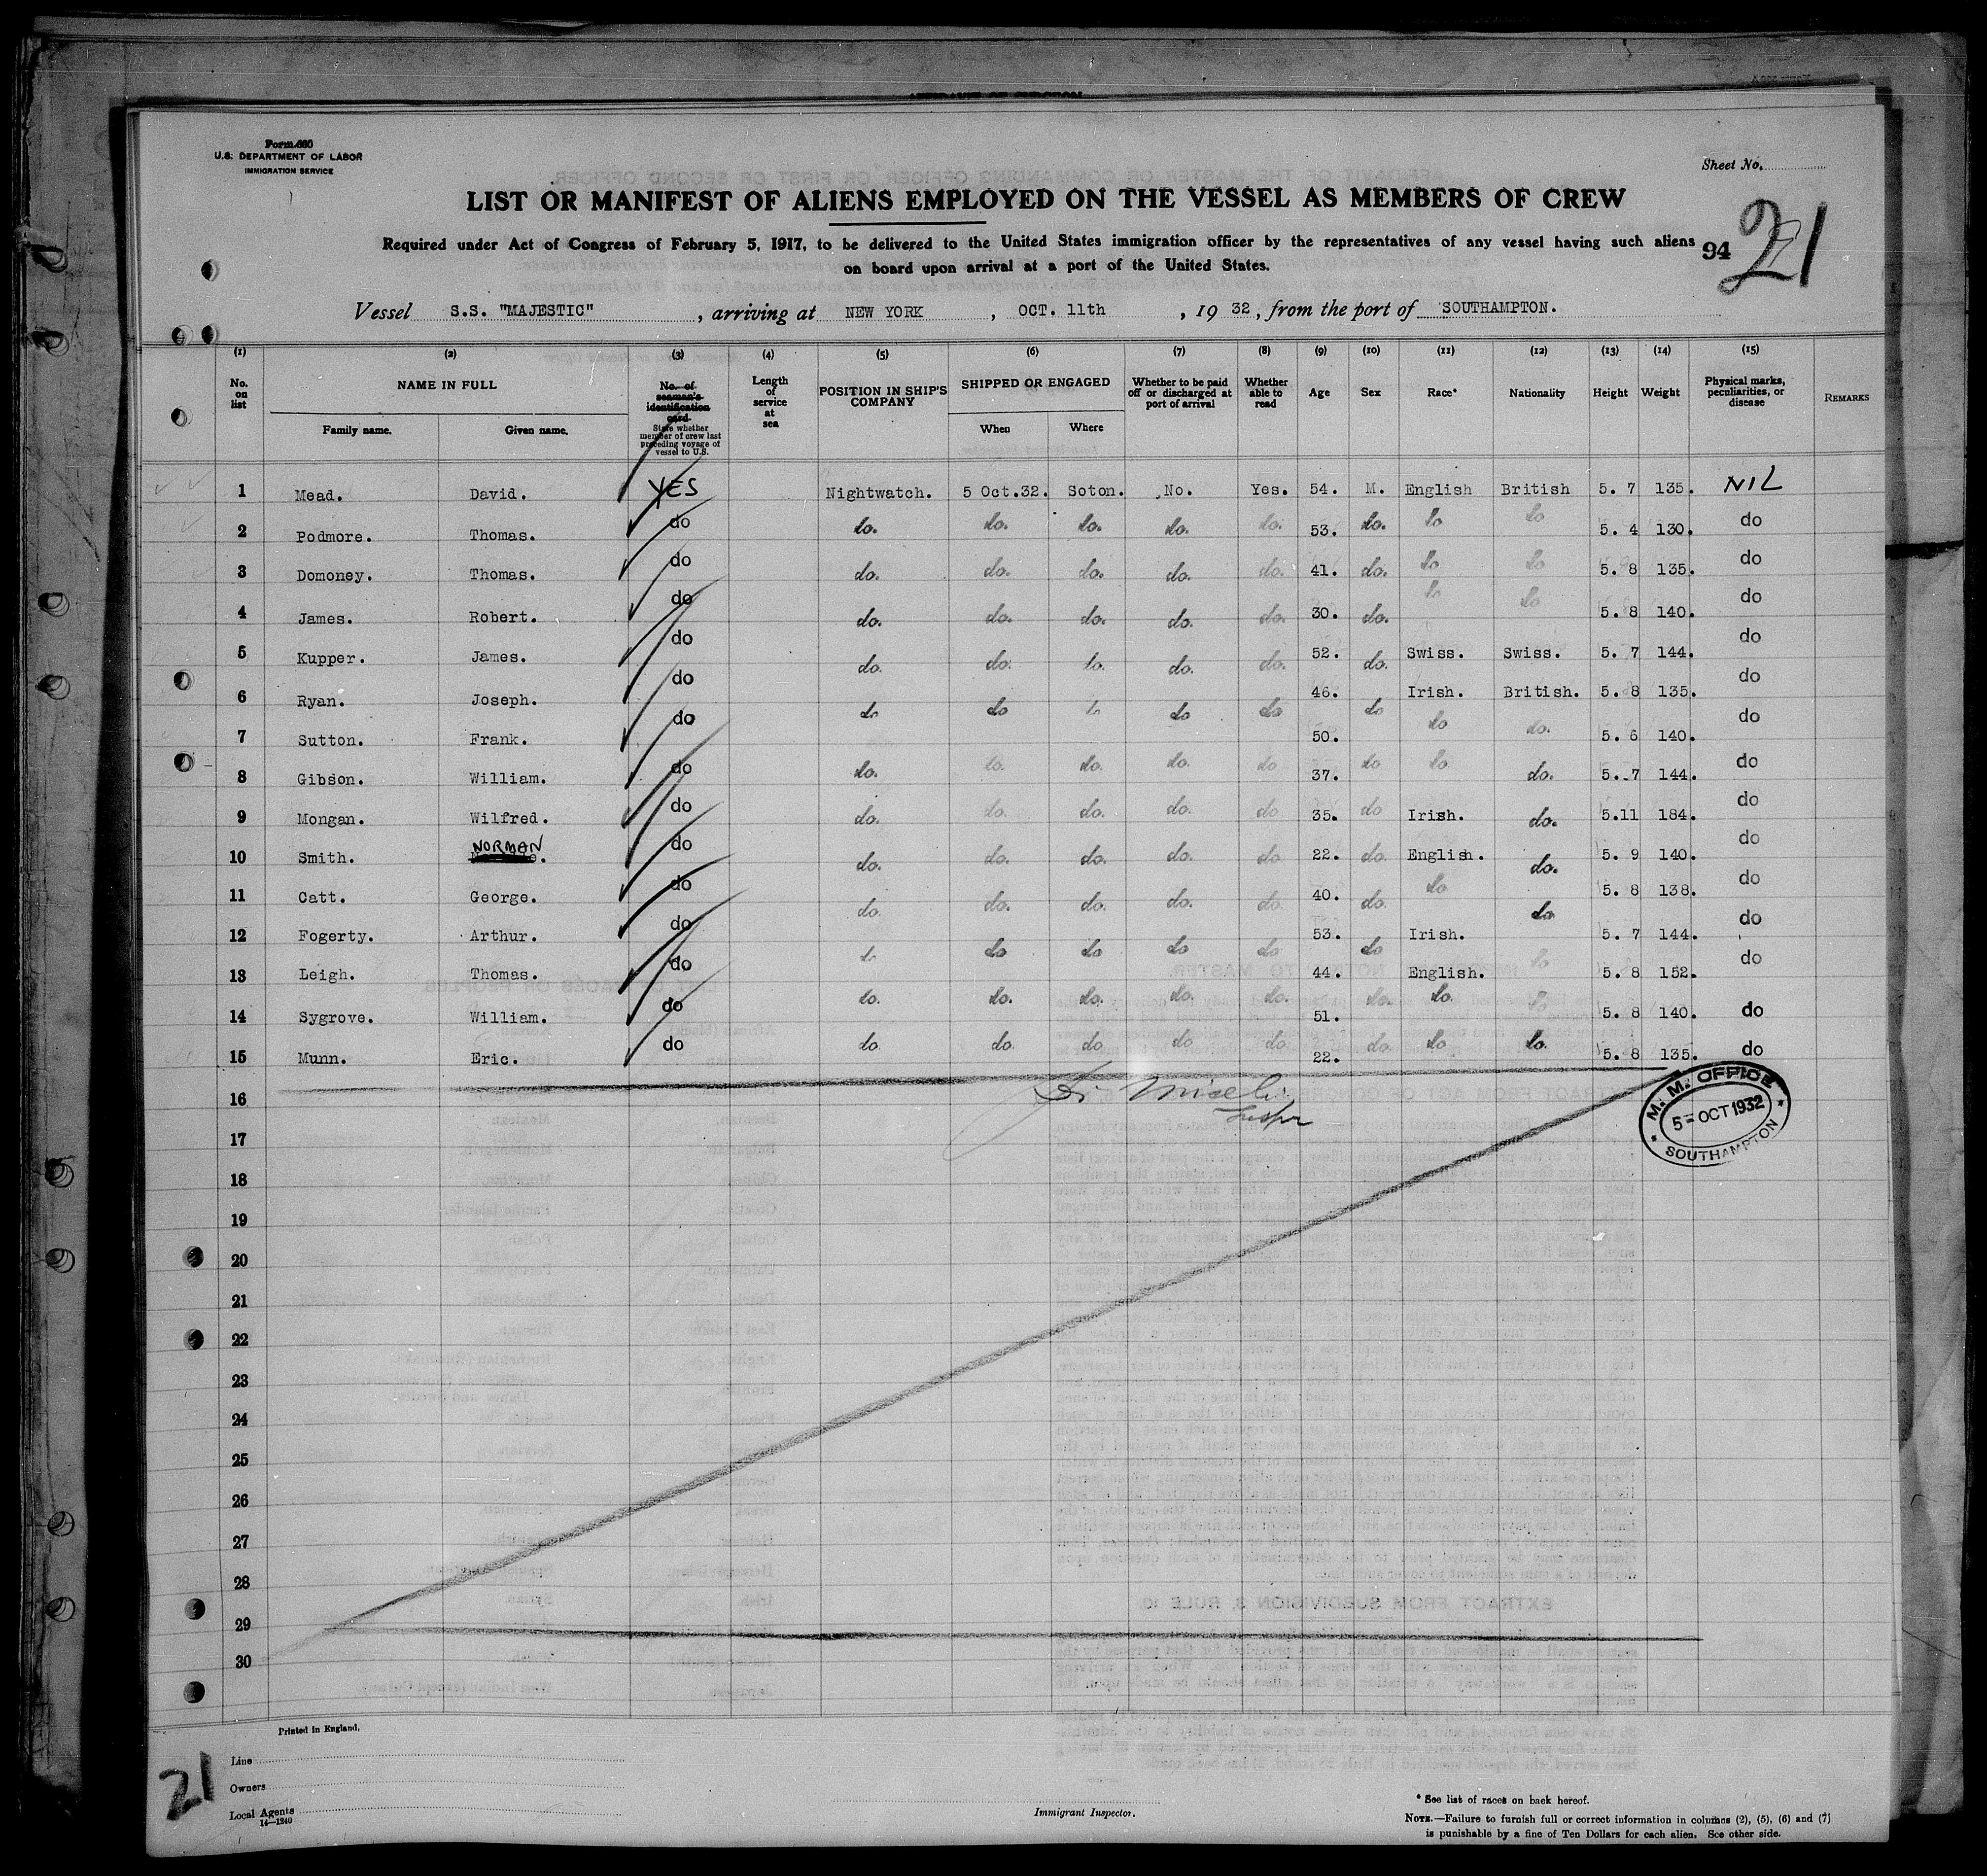 Form 680
U.S. DEPARTMENT OF LABOR
IMMIGRATION SERVICE
Sheet No.
LIST OR MANIFEST OF ALIENS EMPLOYED ON THE VESSEL AS MEMBERS OF CREW
Required under Act of Congress of February 5, 1917, to be delivered to the United States immigration officer by the representatives of any vessel having such aliens
on board upon arrival at a port of the United States.
94 21
Vessel S.S. "MAJESTIC", arriving at NEW YORK, OCT. 11th, 1932, from the port of SOUTHAMPTON.
(1) (2) (3) (4) (5) (6) (7) (8) (9) (10) (11) (12) (13) (14) (15)
No. on list NAME IN FULL Family name. Given name. No. of seaman's identification card. State whether member of crew last preceding voyage of vessel to U.S. Length of service at sea POSITION IN SHIP'S COMPANY SHIPPED OR ENGAGED When Where Whether to be paid off or discharged at port of arrival Whether able to read Age Sex Race* Nationality Height Weight Physical marks, peculiarities, or disease REMARKS
1 Mead. David. YES Nightwatch. 5 Oct.32. Soton. No. Yes. 54. M. English British 5. 7 135. NIL
2 Podmore. Thomas. do do. do. do. do. do. 53. do. do do 5. 4 130. do
3 Domoney. Thomas. do do. do. do. do. do. 41. do. do do 5. 8 135. do
4 James. Robert. do do. do. do. do. do. 30. do. do do 5. 8 140. do
5 Kupper. James. do do. do. do. do. do. 52. do. Swiss. Swiss. 5. 7 144. do
6 Ryan. Joseph. do do do do do do 46. do Irish. British. 5. 8 135. do
7 Sutton. Frank. do 50. do do. 5. 6 140. do
8 Gibson. William. do do. do. do. do. do 37. do do do. 5. 7 144. do
9 Mongan. Wilfred. do do. do. do. do. do 35. do Irish. do. 5.11 184. do
10 Smith. NORMAN do do. do. do. do. do 22. do. English. do. 5. 9 140. do
11 Catt. George. do do. do. do. do. do. 40. do. do do 5. 8 138. do
12 Fogerty. Arthur. do do do do do do 53. do Irish. 5. 7 144. do
13 Leigh. Thomas. do 44. English. do 5. 8 152. do
14 Sygrove. William. do do. do. do. do. do. 51. do. do. do 5. 8 140. do
15 Munn. Eric. do do. do. do do do. 22. do. do do. 5. 8 135. do
16
M. M. OFFICE
5 = OCT 1932
SOUTHAMPTON
17
18
19
20
21
22
23
24
25
26
27
28
29
30
Printed in England.
21
Line
Owners
Local Agents
14—1240
Immigrant Inspector.
* See list of races on back hereof.
NOTE.—Failure to furnish full or correct information in columns (2), (5), (6) and (7)
is punishable by a fine of Ten Dollars for each alien. See other side.